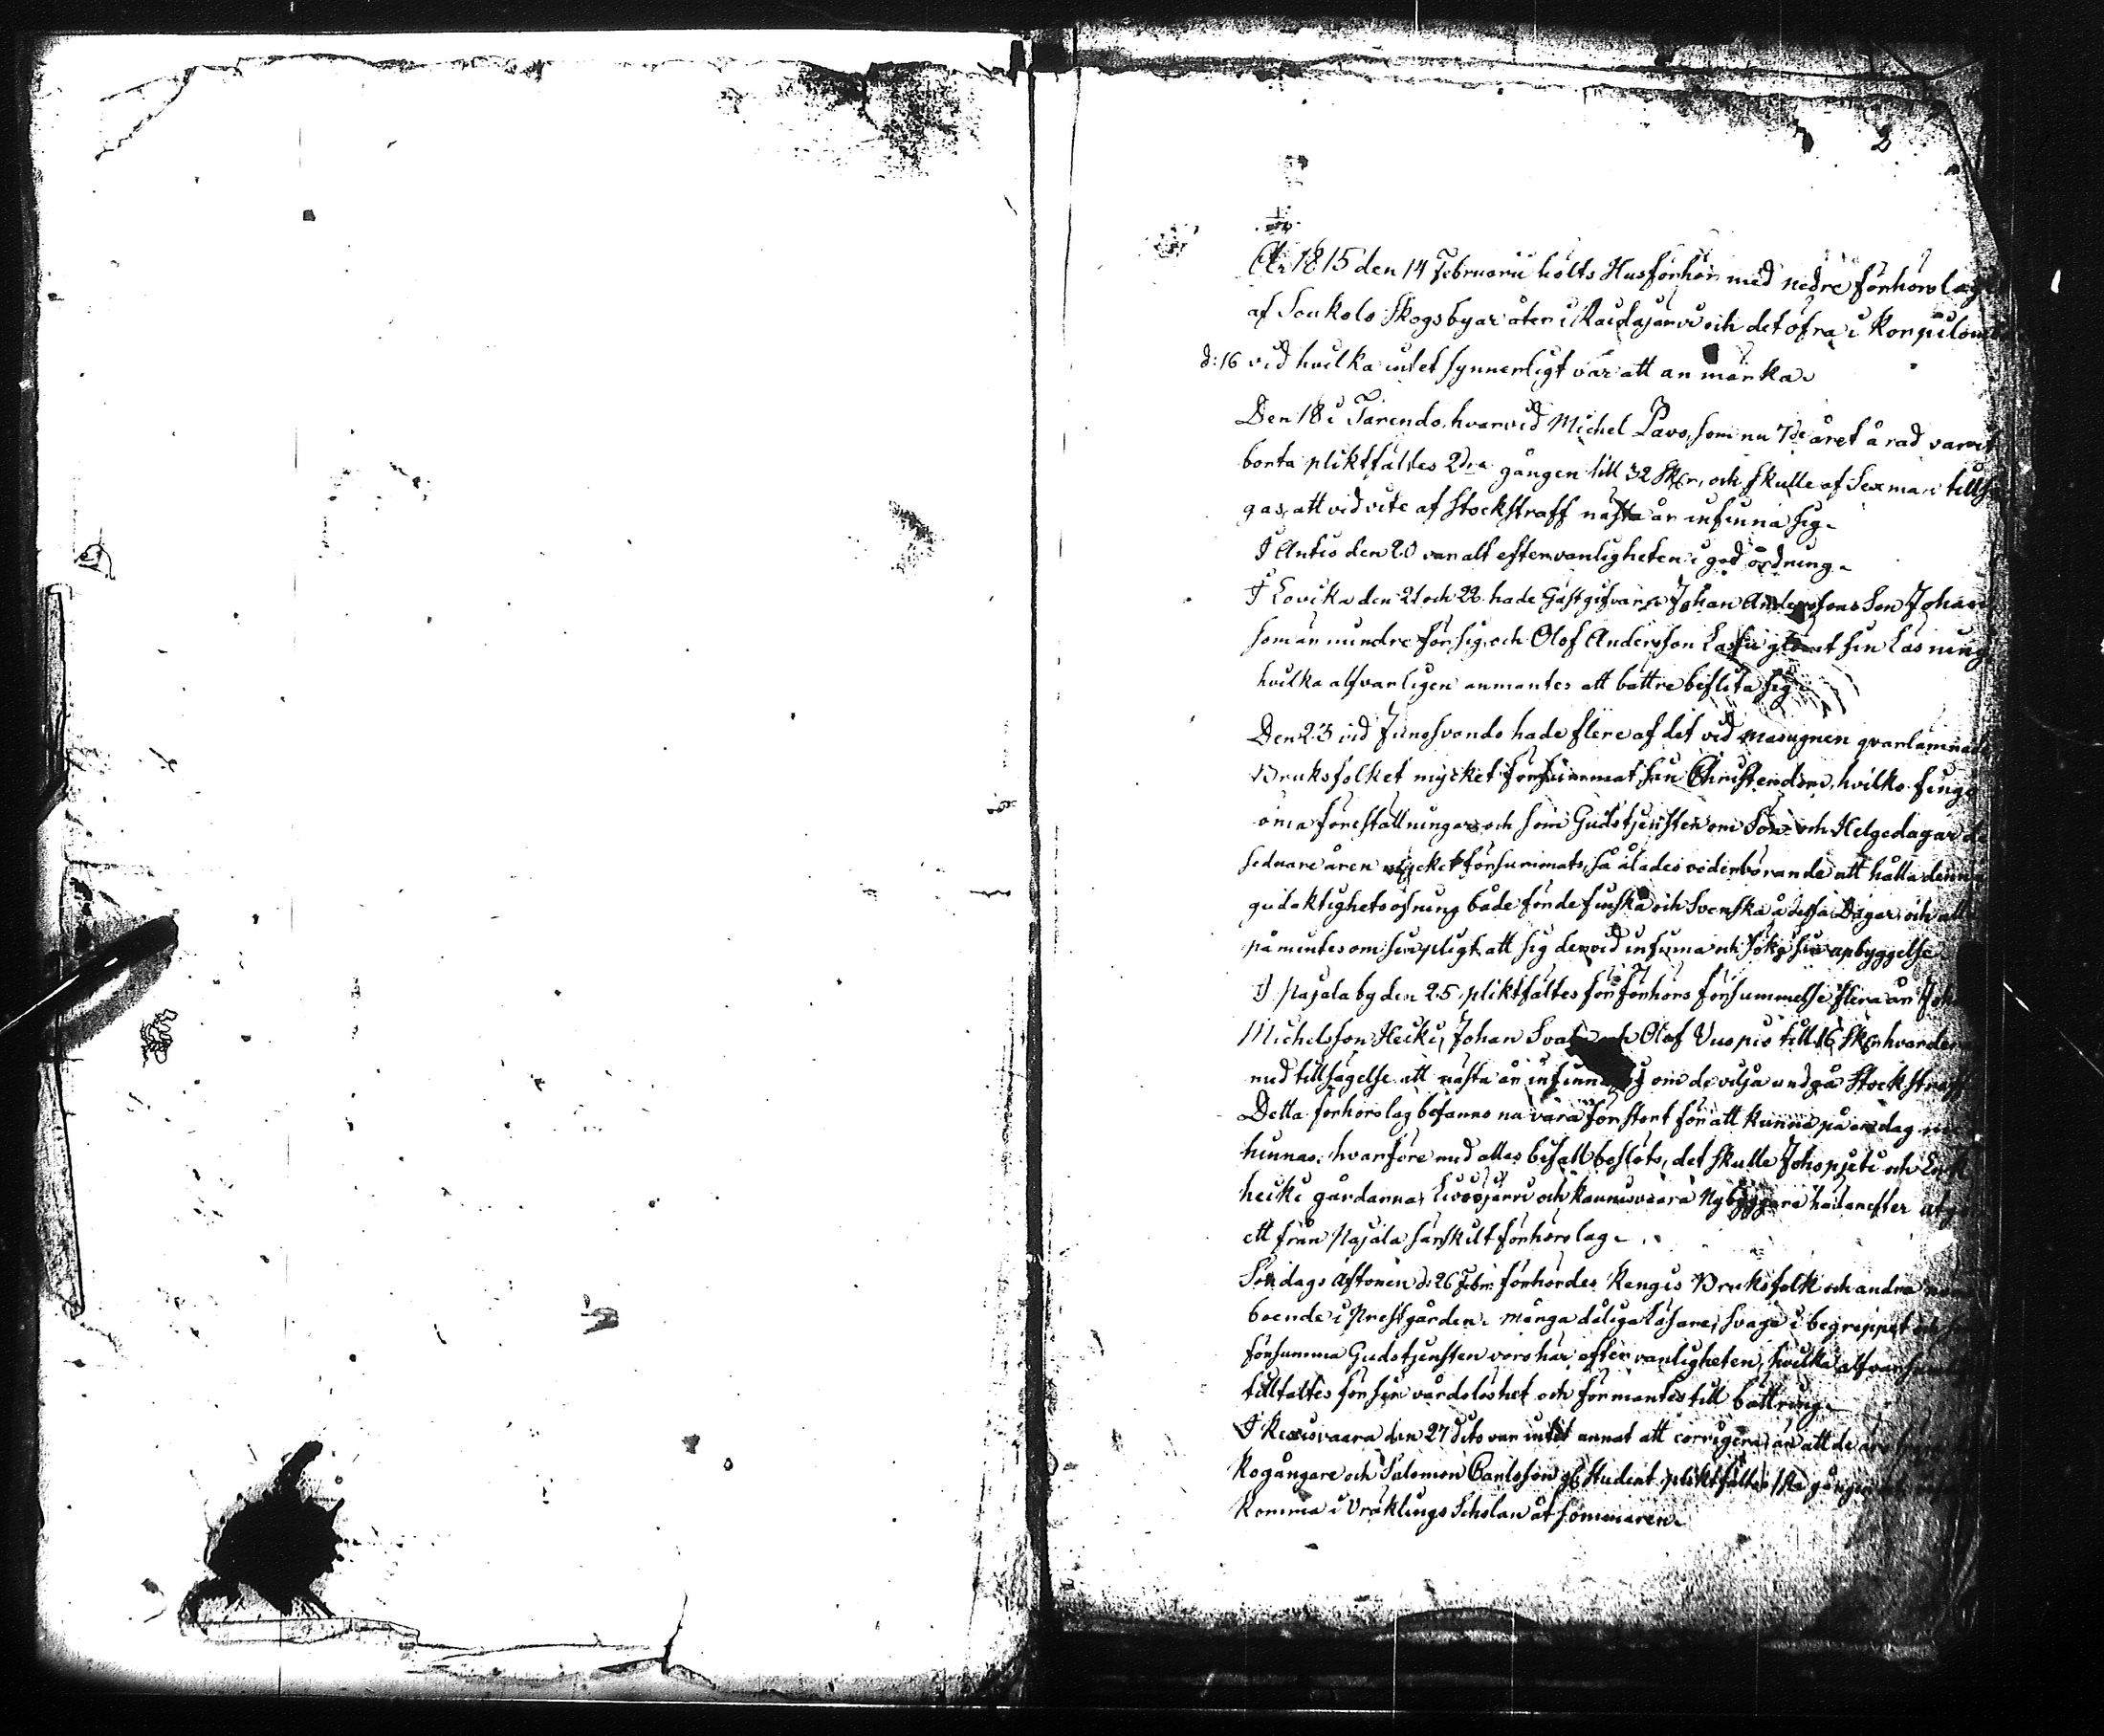 2
År 1815 den 14 Februarii hölts Husförhör med nedre förhörslaget
af Soukolo Skogsbyar åter i Raidajärvi och det öfra i Korpilombolo
d: 16 vid hvilka intet synnerligt var att anmärka.
Den 18 i Tärendö, hvarvid Michel Pavo, som nu 7de året å rad varit
borta pliktfältes 2dra gången till 32 Sk r, och skulle af Sexman tillsä-
gas, att vid vite af Stockstraff nästa år infinna sig.
I Antis den 20 var alt efter vanligheten i god ordning.
I Lovika den 21 och 22 hade Gästgifvaren Johan Anderssons Son Johan
som än mindre för sig, och Olof Andersson Lassu glömt sin läsning
hvilka alfvarligen anmantes att bättre beflita sig.
Den 23 vid Junosvando hade flere af det vid Masugnen qvarlämnade
Bruksfolket mycket försummat sin Christendom, hvilka fingo
öma föreställningar och som Gudstjensten om Sön- och Helgedagar de
sednare åren mycket försummats, så ålades vederbörande att hålla denna
gudaktighetsöfning både för de finska och Svenska å dessa Dagar, och alla
påmintes om sin pligt, att sig dervid infinna och söka sin upbyggelse.
I Pajala by den 25 pliktfältes för förhörs försummelse flera år Joh
Michelsson Heiki, Johan och Olof Vuopio till 16 Sk r hvardera
med tillsägelse att nästa år infinna sig om de vilja undgå Stockstraff
Detta förhörslag befanns nu vara för stort för att kunna på en dag
hinnas, hvarföre med allas bifall beslöts, det skulle Johopjeti och Erk
heiki gårdarna, Liviöjärvi och Kaunisvaara Nybyggare hädanefter utgö
ett från Pajala särskilt förhörslag.
Söndags Aftonen d: 26 Febr. förhördes Kengis Bruksfolk och andra
boende i Prestgården. Många dåliga läsare, svage i begreppet och
försumma Gudstjensten voro här efter vanligheten, hvilka alfvarsamt
tilltaltes för sin vårdslöshet och förmantes till bättring.
I Kexisvaara den 27 dito var intet annat att corrigera, än att de äro
kogångare och Salomon Carlsson gl Student pliktfältes 1sta gången att
komma i Vräklings Scholan åt sommaren.